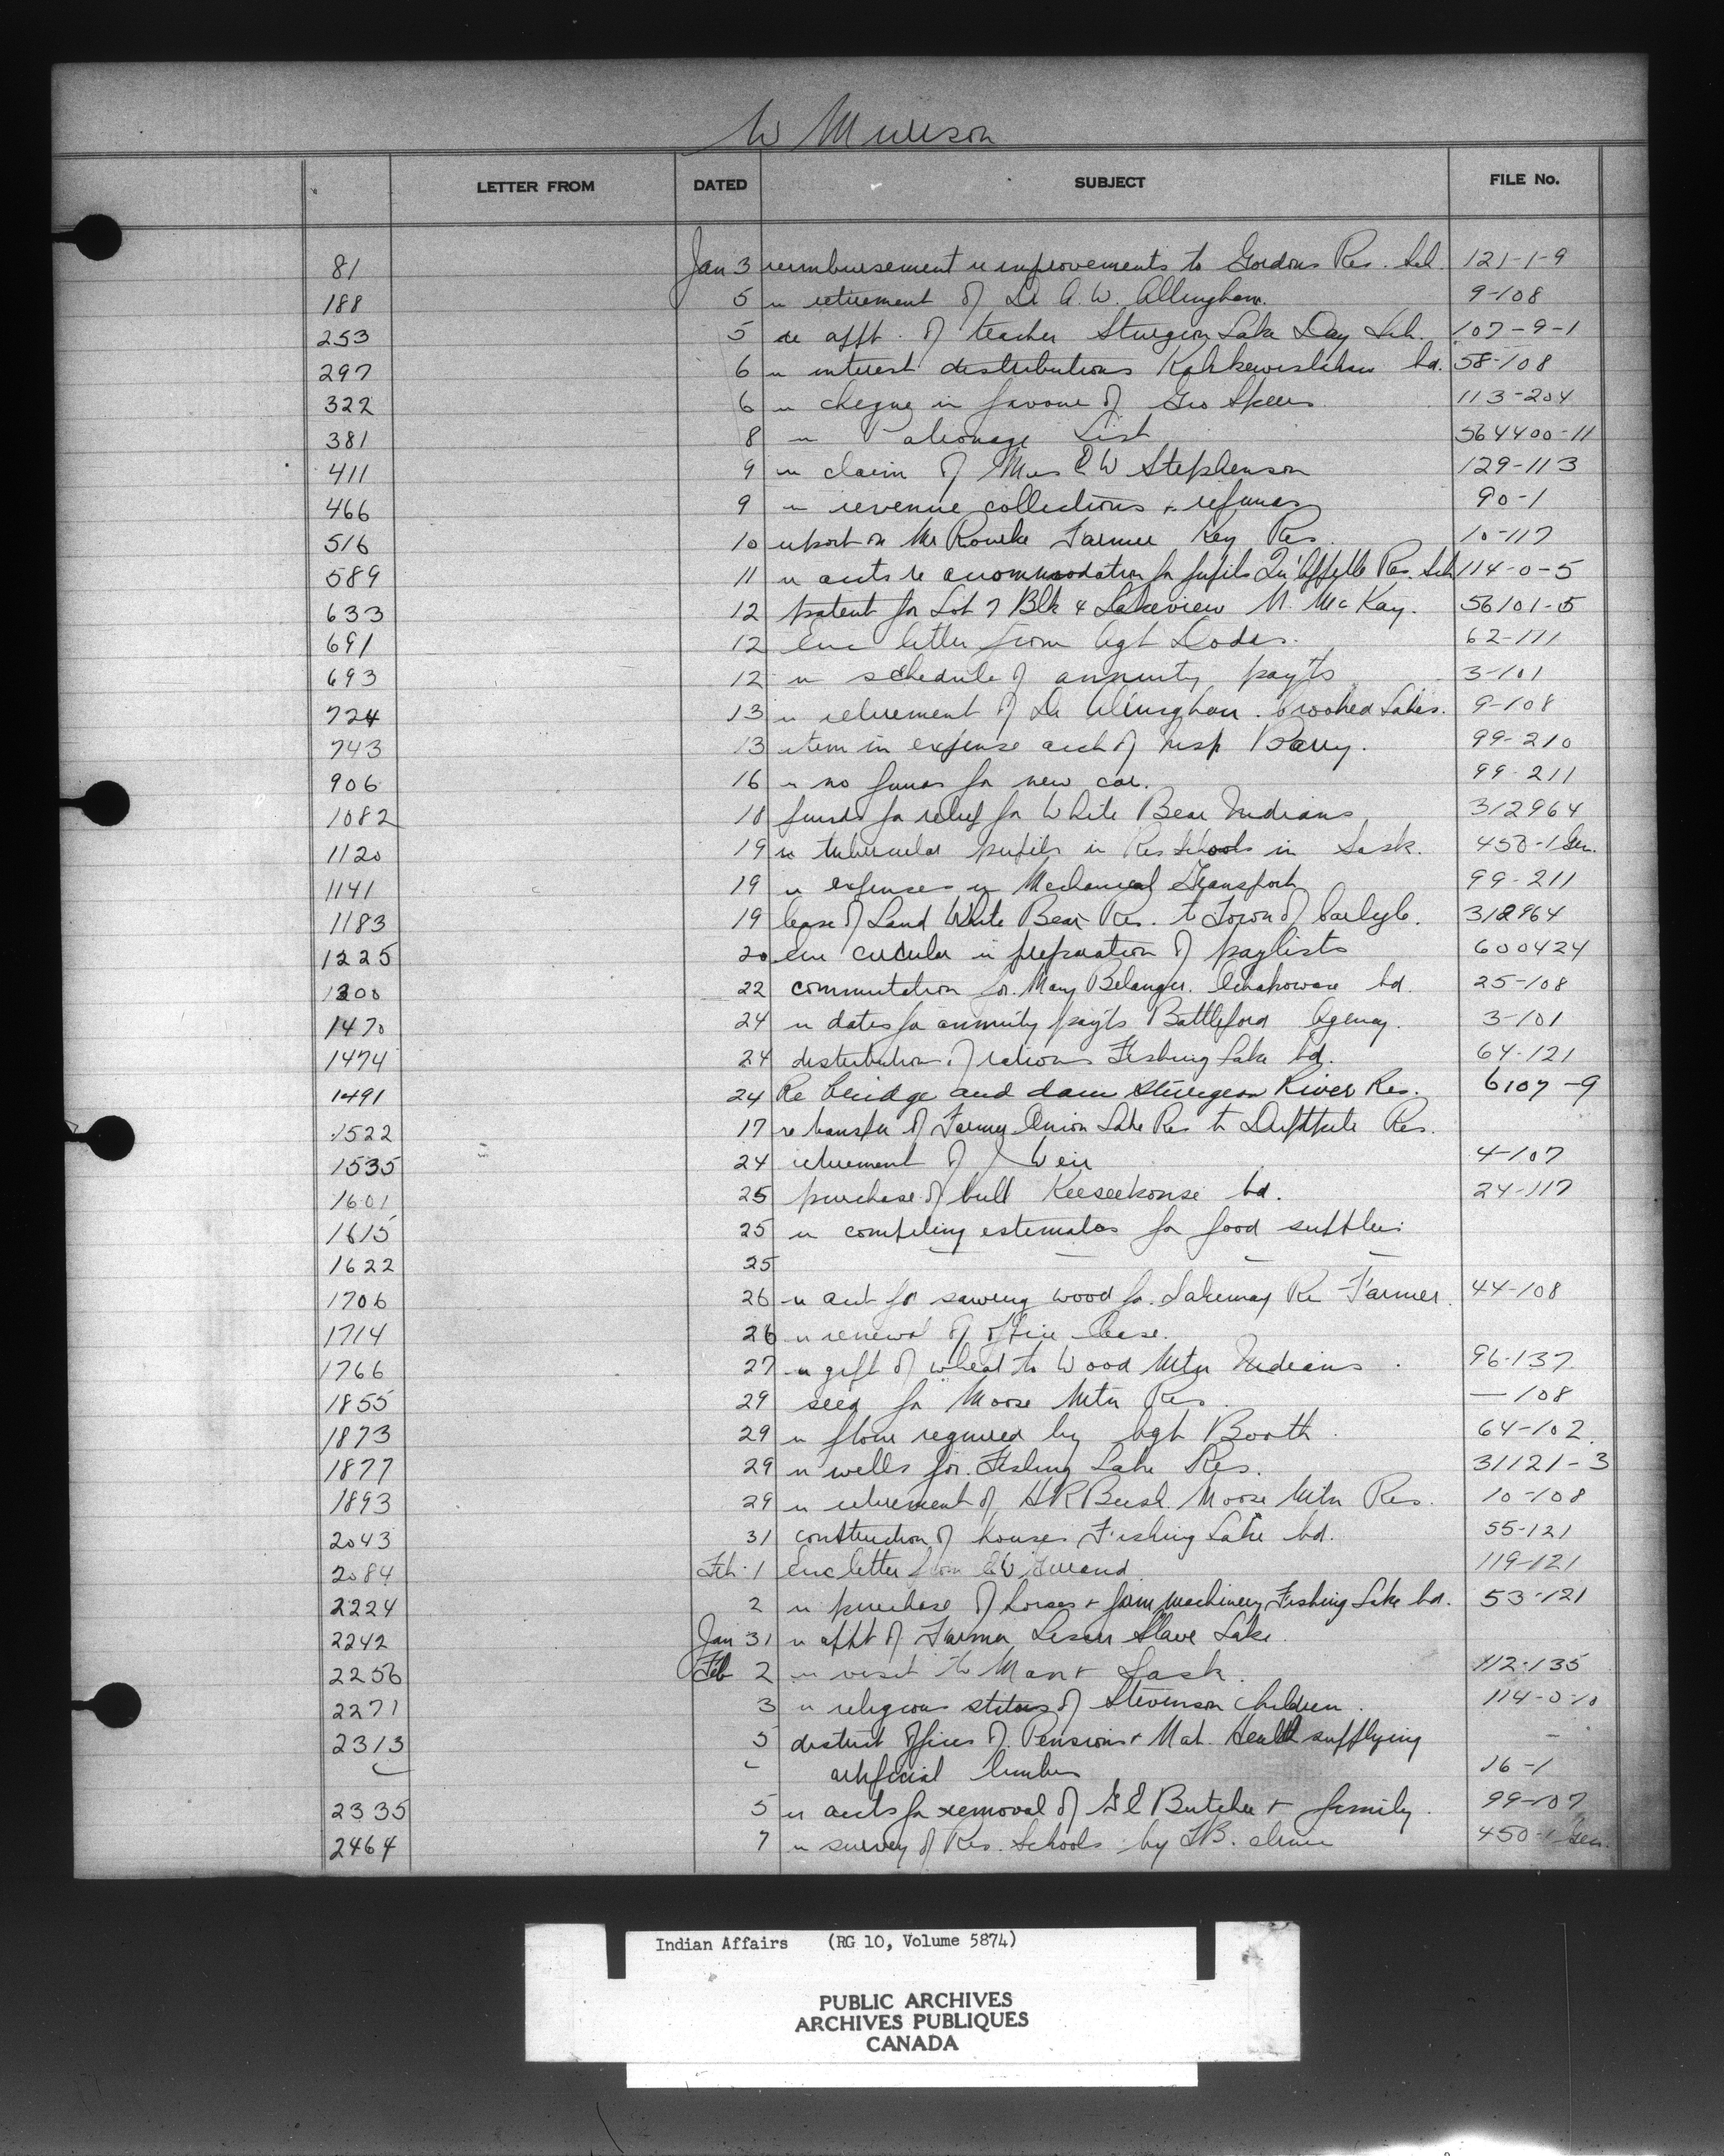 W Murison
LETTER FROM DATED SUBJECT FILE No.
81 Jan 3 reimbursement re improvements to Gordons Res. Sch. 121-1-9
188 5 re retirement of Dr A. W. Allingham. 9-108
253 5 re appt. of teacher Sturgeon Lake Day Sch. 107-9-1
297 6 re interest distributions Kahkewistahaw bd. 58-108
322 6 re cheque in favour of Geo Speers 113-204
381 8 re Patronage List 564400-11
411 9 re claim of Mrs E W Stephenson 129-113
466 9 re revenue collections + refunds 90-1
516 10 report on Mr Rourke Farmer Key Res. 10-117
589 11 re accts re accommodation for pupils Qu'Appelle Res. Sch 114-0-5
633 12 patent for Lot 7 Blk 4 Lakeview N. McKay. 56101-5
691 12 Enc letter from Agt Dodds. 62-111
693 12 re schedule of annuity payts 3-101
724 13 re retirement of Dr Allingham. Crooked Lakes. 9-108
743 13 item in expense acct of Insp Barry. 99-210
906 16 re no funds for new car. 99-211
1082 18 funds for relief for White Bear Indians 312964
1120 19 re tubercular pupils in Res Schools in Sask. 450-1 Gen.
1141 19 re expenses re Mechanical Transport 99-211
1183 19 lease of Land White Bear Res. to Town of Carlyle. 312964
1225 20 Enc circular re preparation of paylists 600424
1300 22 commutation for Mary Belanger. bd. 25-108
1470 24 re dates for annuity payts Battleford Agency. 3-101
1474 24 distribution of rations Fishing Lake bd. 64-121
1491 24 Re bridge and dam Sturgeon River Res. 6107-9
1522 17 re transfer of Farmer Onion Lake Res to Res.
1535 24 retirement of J Weir 4-107
1601 25 purchase of bull Keeseekouse bd. 24-117
1615 25 re compiling estimates for food supplies
1622 25 — — — —
1706 26 re acct for sawing wood for Sakimay Res Farmer. 44-108
1714 26 re renewal of office lease.
1766 27 re gift of wheat to Wood Mtn Indians. 96-137
1855 29 seed for Moose Mtn Res. — 108
1873 29 re flour required by Agt Booth. 64-102
1877 29 re wells for Fishing Lake Res. 31121-3
1893 29 re retirement of H R Bush. Moose Mtn Res. 10-108
2043 31 construction of houses Fishing Lake bd. 55-121
2084 Feb. 1 Enc letter from E W 119-121
2224 2 re purchase of horses + farm machinery Fishing Lake bd. 53-121
2242 Jan 31 re appt of Farmer Lesser Slave Lake.
2256 Feb 2 re visit to Man + Sask. 112-135
2271 3 re religious status of Stevenson children. 114-0-10
2313 5 district offices of Pensions + Nat. Health supplying –
artificial limbs 16-1
2335 5 re accts for removal of G E Butcher + family. 99-107
2464 7 re survey of Res. Schools by 450-1 Gen.
Indian Affairs (RG 10, Volume 5874)
PUBLIC ARCHIVES
ARCHIVES PUBLIQUES
CANADA